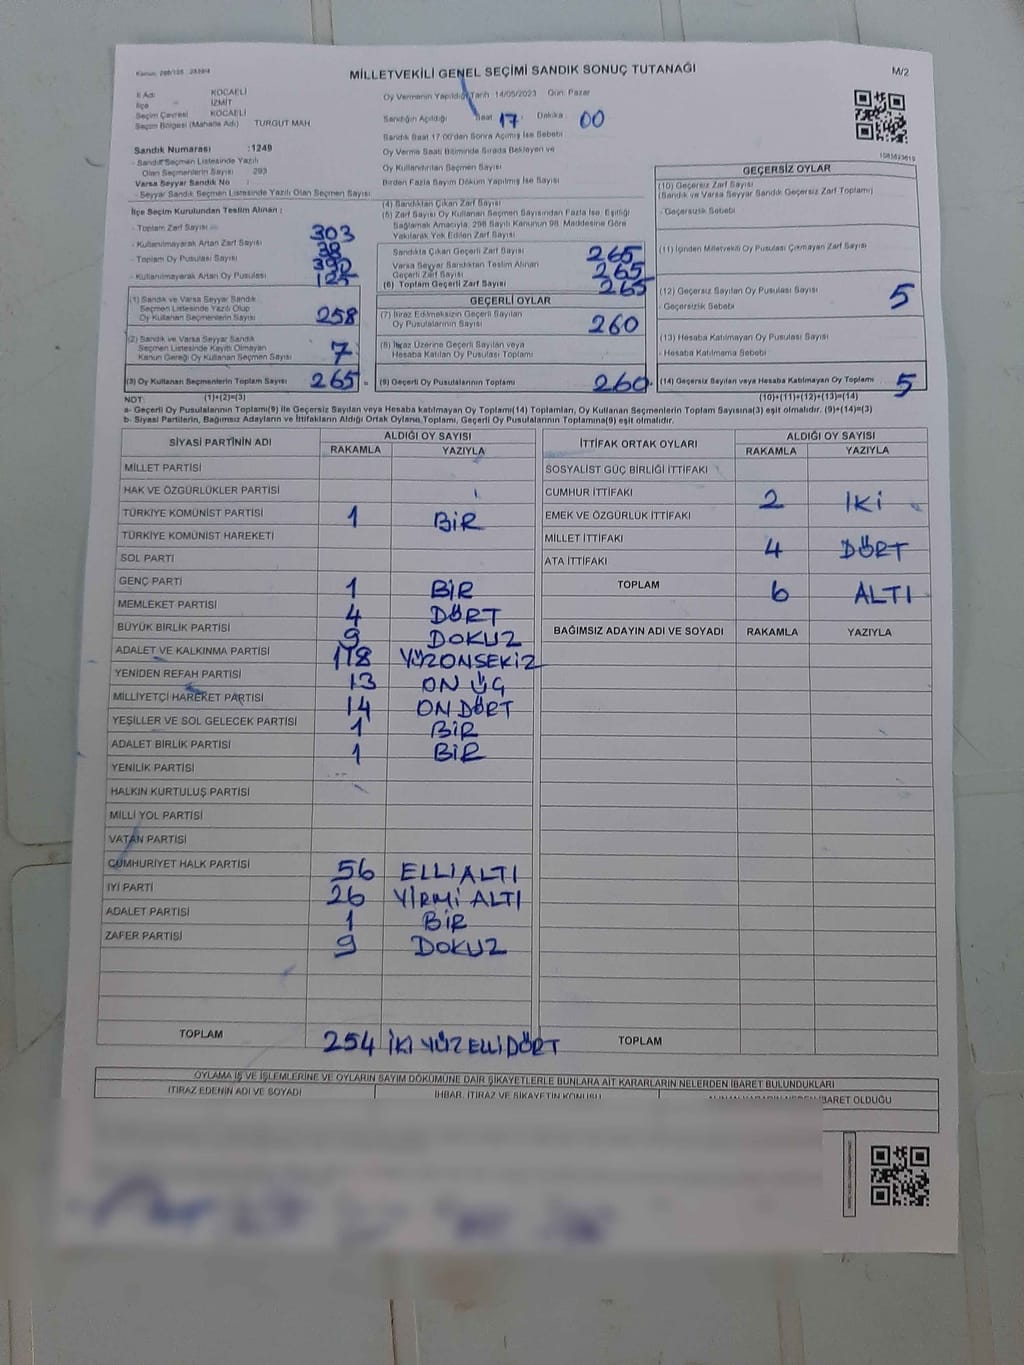 MİLLETVEKİLİ GENEL SEÇİMİ SANDIK SONUÇ TUTANAĞI
M/2
İl Adı KOCAELİ
İlçe İZMİT
Seçim Çevresi KOCAELİ
Seçim Bölgesi (Mahalle Adı) TURGUT MAH
Sandık Numarası : 1249
- Sandık Seçmen Listesinde Yazılı
Olan Seçmenlerin Sayısı 293
Varsa Seyyar Sandık No :
- Seyyar Sandık Seçmen Listesinde Yazılı Olan Seçmen Sayısı
Oy Vermenin Yapıldığı Tarih 14/05/2023 Gün: Pazar
Sandığın Açıldığı Saat 17 Dakika 00
Sandık Saat 17:00'den Sonra Açılmış İse Sebebi
Oy Verme Saati Bitiminde Sırada Bekleyen ve
Oy Kullandırılan Seçmen Sayısı
Birden Fazla Sayım Döküm Yapılmış İse Sayısı
İlçe Seçim Kurulundan Teslim Alınan :
- Toplam Zarf Sayısı 303
- Kullanılmayarak Artan Zarf Sayısı
- Toplam Oy Pusulası Sayısı
- Kullanılmayarak Artan Oy Pusulası 125
(1) Sandık ve Varsa Seyyar Sandık
Seçmen Listesinde Yazılı Olup
Oy Kullanan Seçmenlerin Sayısı 258
(2) Sandık ve Varsa Seyyar Sandık
Seçmen Listesinde Kayıtlı Olmayan
Kanun Gereği Oy Kullanan Seçmen Sayısı 7
(3) Oy Kullanan Seçmenlerin Toplam Sayısı 265 =
(4) Sandıktan Çıkan Zarf Sayısı
(5) Zarf Sayısı Oy Kullanan Seçmen Sayısından Fazla İse, Eşitliği
Sağlamak Amacıyla, 298 Sayılı Kanunun 98. Maddesine Göre
Yakılarak Yok Edilen Zarf Sayısı
Sandıkta Çıkan Geçerli Zarf Sayısı 265
Varsa Seyyar Sandıktan Teslim Alınan
Geçerli Zarf Sayısı 265
(6) Toplam Geçerli Zarf Sayısı 265
GEÇERLİ OYLAR
(7) İtiraz Edilmeksizin Geçerli Sayılan
Oy Pusulalarının Sayısı 260
(8) İtiraz Üzerine Geçerli Sayılan veya
Hesaba Katılan Oy Pusulası Toplamı
(9) Geçerli Oy Pusulalarının Toplamı 260
GEÇERSİZ OYLAR
(10) Geçersiz Zarf Sayısı
(Sandık ve Varsa Seyyar Sandık Geçersiz Zarf Toplamı)
- Geçersizlik Sebebi
(11) İçinden Milletvekili Oy Pusulası Çıkmayan Zarf Sayısı
(12) Geçersiz Sayılan Oy Pusulası Sayısı 5
- Geçersizlik Sebebi
(13) Hesaba Katılmayan Oy Pusulası Sayısı
- Hesaba Katılmama Sebebi
(14) Geçersiz Sayılan veya Hesaba Katılmayan Oy Toplamı 5
NOT: (1)+(2)=(3) (10)+(11)+(12)+(13)=(14)
a- Geçerli Oy Pusulalarının Toplamı(9) İle Geçersiz Sayılan veya Hesaba katılmayan Oy Toplamı(14) Toplamları, Oy Kullanan Seçmenlerin Toplam Sayısına(3) eşit olmalıdır. (9)+(14)=(3)
b- Siyasi Partilerin, Bağımsız Adayların ve İttifakların Aldığı Ortak Oyların Toplamı, Geçerli Oy Pusulalarının Toplamına(9) eşit olmalıdır.
SİYASİ PARTİNİN ADI ALDIĞI OY SAYISI
RAKAMLA YAZIYLA
MİLLET PARTİSİ
HAK VE ÖZGÜRLÜKLER PARTİSİ
TÜRKİYE KOMÜNİST PARTİSİ 1 BİR
TÜRKİYE KOMÜNİST HAREKETİ
SOL PARTİ
GENÇ PARTİ 1 BİR
MEMLEKET PARTİSİ 4 DÖRT
BÜYÜK BİRLİK PARTİSİ 9 DOKUZ
ADALET VE KALKINMA PARTİSİ 118 YÜZONSEKİZ
YENİDEN REFAH PARTİSİ 13 ON ÜÇ
MİLLİYETÇİ HAREKET PARTİSİ 14 ON DÖRT
YEŞİLLER VE SOL GELECEK PARTİSİ 1 BİR
ADALET BİRLİK PARTİSİ 1 BİR
YENİLİK PARTİSİ
HALKIN KURTULUŞ PARTİSİ
MİLLİ YOL PARTİSİ
VATAN PARTİSİ
CUMHURİYET HALK PARTİSİ 56 ELLİ ALTI
İYİ PARTİ 26 YİRMİ ALTI
ADALET PARTİSİ 1 BİR
ZAFER PARTİSİ 9 DOKUZ
TOPLAM 254 İKİ YÜZ ELLİ DÖRT
İTTİFAK ORTAK OYLARI ALDIĞI OY SAYISI
RAKAMLA YAZIYLA
SOSYALİST GÜÇ BİRLİĞİ İTTİFAKI
CUMHUR İTTİFAKI 2 İKİ
EMEK VE ÖZGÜRLÜK İTTİFAKI
MİLLET İTTİFAKI 4 DÖRT
ATA İTTİFAKI
TOPLAM 6 ALTI
BAĞIMSIZ ADAYIN ADI VE SOYADI RAKAMLA YAZIYLA
TOPLAM
OYLAMA İŞ VE İŞLEMLERİNE VE OYLARIN SAYIM DÖKÜMÜNE DAİR ŞİKAYETLERLE BUNLARA AİT KARARLARIN NELERDEN İBARET BULUNDUKLARI
İTİRAZ EDENİN ADI VE SOYADI İHBAR, İTİRAZ VE ŞİKAYETİN KONUSU